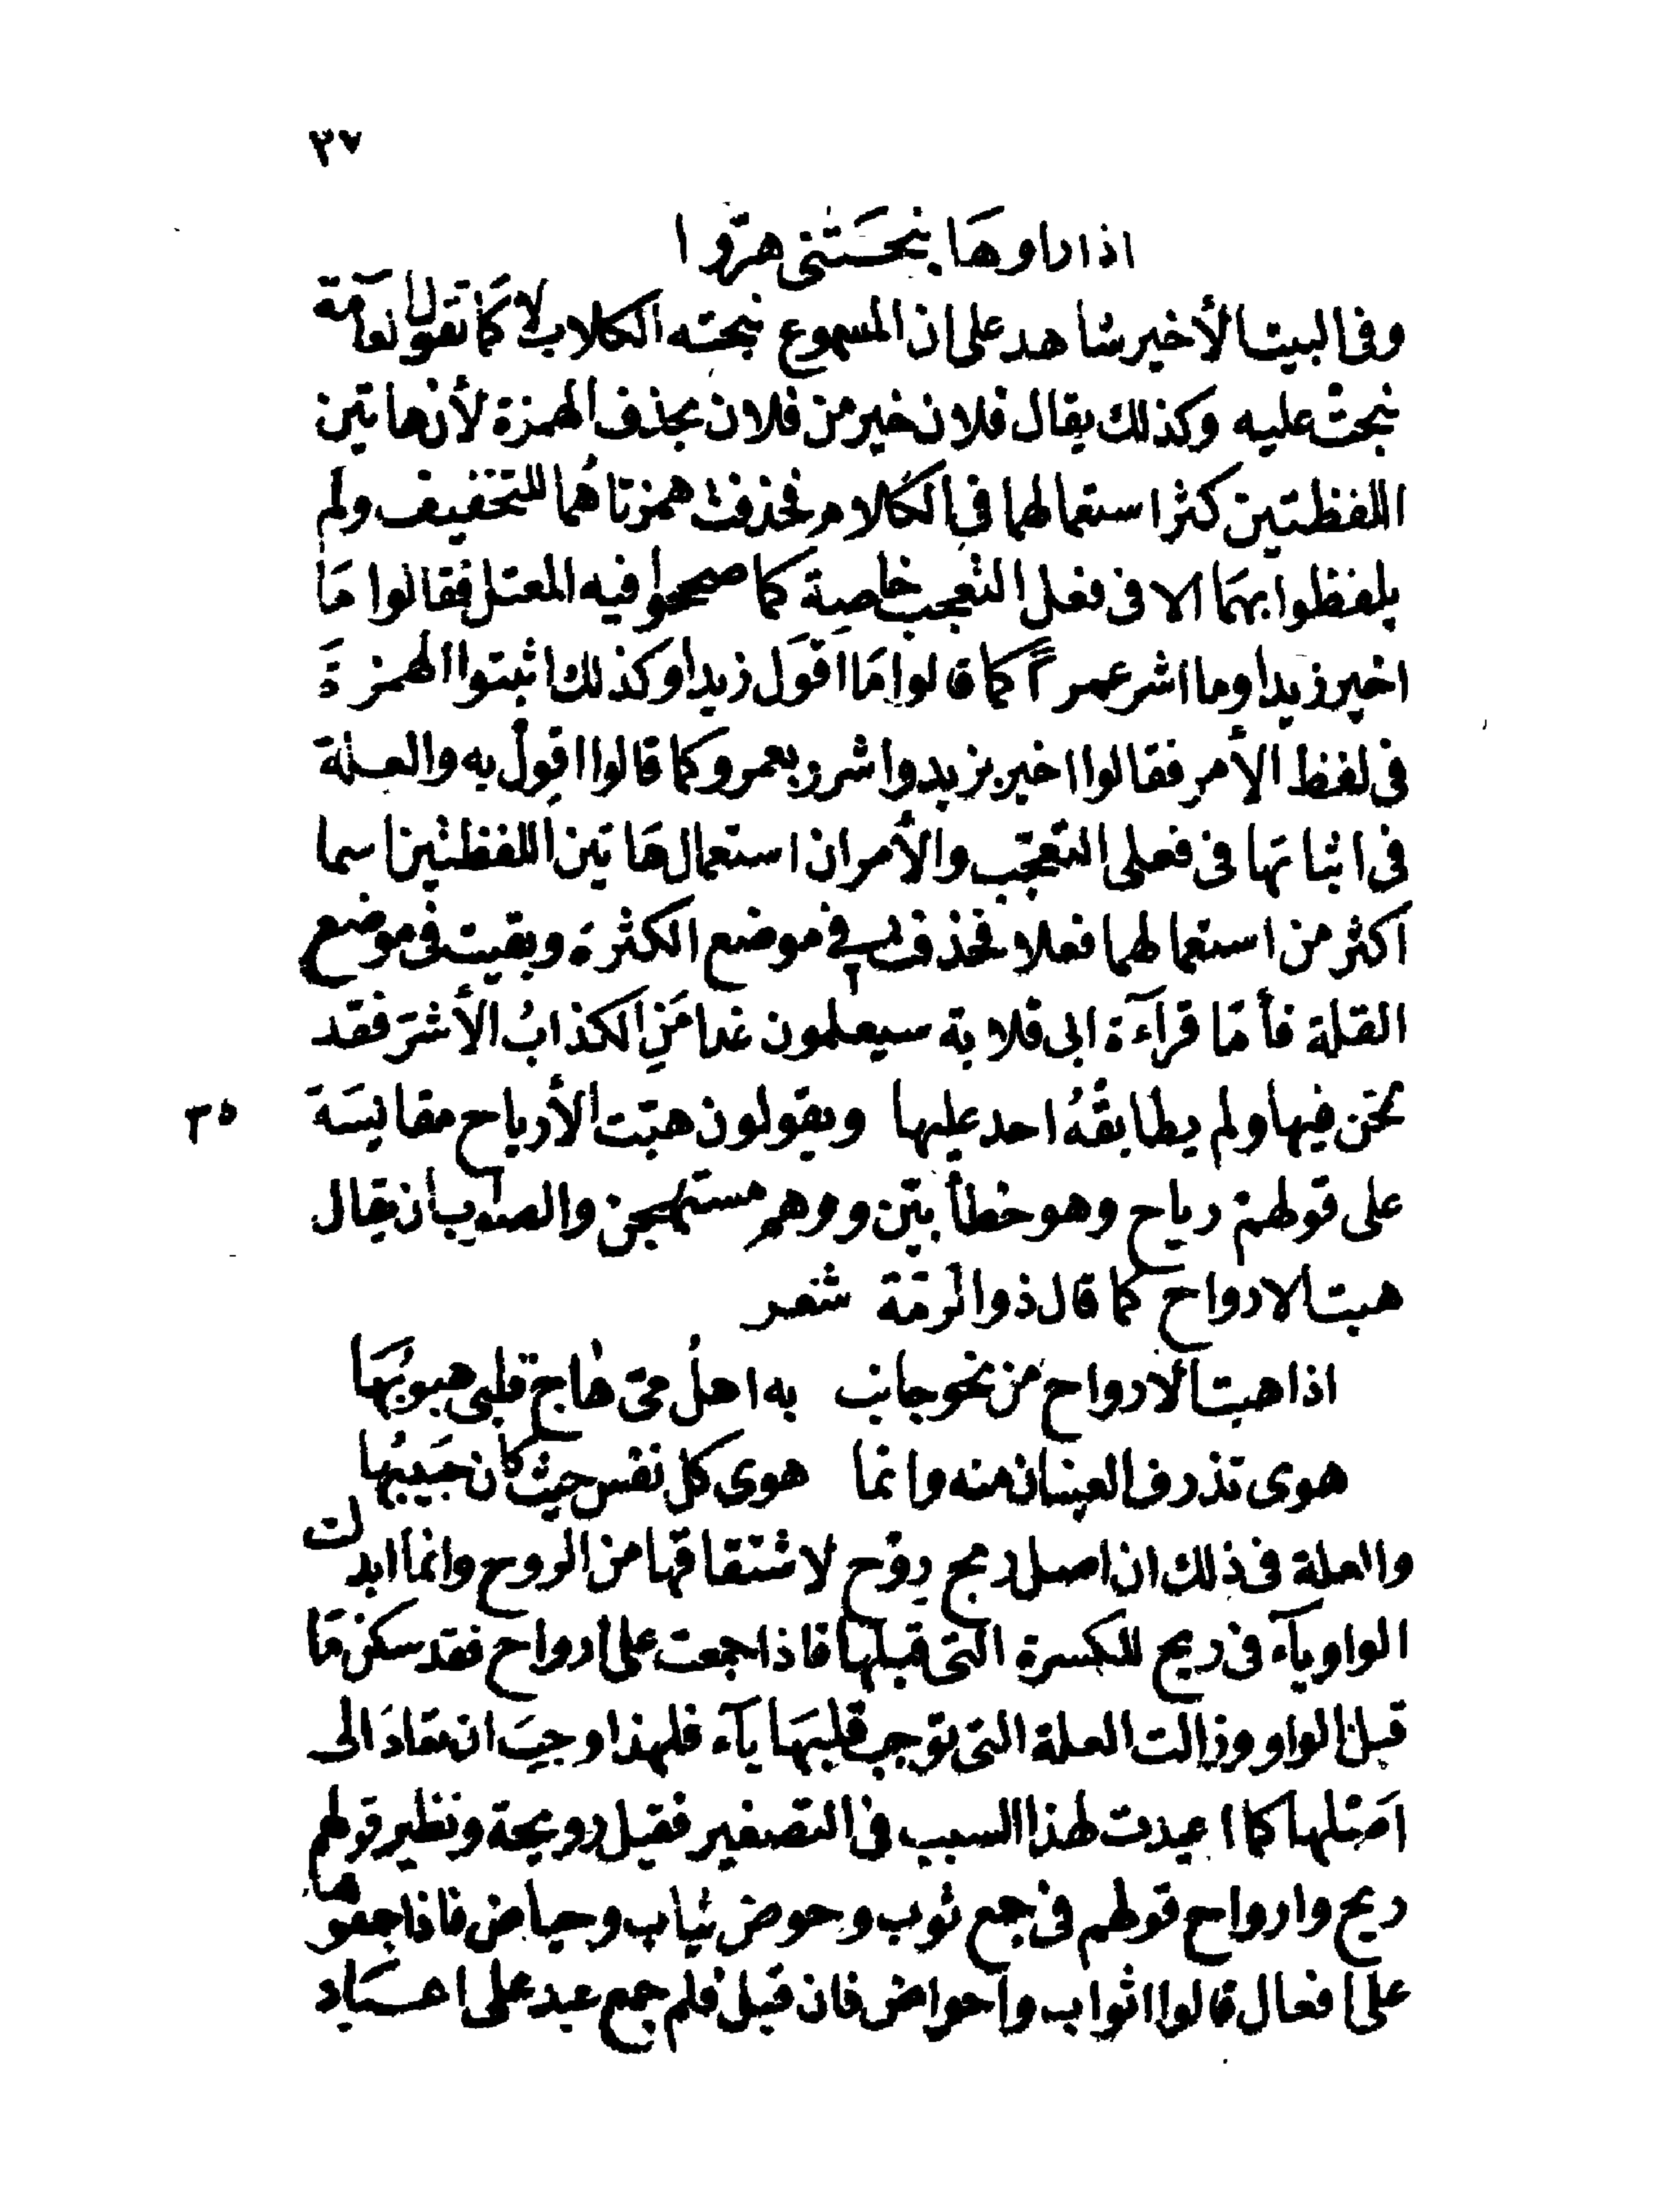 ٣٧
اذا راوها نبحتنى هرّوا
وفى البيت الأخير شاهد على ان المسموع نبحته الكلاب لا كما تقول العامة
نبحت عليه وكذلك يقال فلان خير من فلان بحذف الهمزة لأن هاتين
اللفظتين كثر استعمالهما فى الكلام فحذفت همزتاهُما للتخفيف ولم
يلفظوا بهمَا الا فى فعل التعجب خاصة كما صححوا فيه المعتل فقالوا مَا
اخير زيدا وما اشر عمرًا كما قالوا مَا اقوَل زيدا وكذلك اثبتوا الهمزةَ
فى لفظ الأمر فقالوا اخير بزيد واشرر بعمرو كما قالوا اقوِل به والعلة
فى اثباتها فى فعلى التعجّب والأمر ان استعمال هَاتين اللفظتين اسما
اكثر من استعمالهما فعلا فحذفت فى موضع الكثرة وبقيت فى موضع
القلة فأمّا قرآءة ابى قلابة سيعلمون غدا مَنِ الكذابُ الأشرّ فقد
لحّن فيها ولم يطابقْهُ احد عليها ويقولون هبّت الأرياح مقايسَة
٣٥
على قولهم رياح وهو خطأ بيّن ووهم مستهجن والصواب ان يقال
هبت الارواح كما قال ذو الرمّة شعر
اذا هبت الارواح من نحو جانب به اهلُ مىّ هاج قلبى هبوبُهَا
هوى تذرف العينان منه وانما هوى كل نفس حيث كان حَبيبُها
والعلة فى ذلك ان اصل ريح رِوْح لاشتقاقها من الروح وانما ابدلت
الواو يآء فى ريح للكسرة التى قبلها فاذا جمعت على ارواح فقد سكن مَا
قبل الواو وزالت العلة التى توجب قلبهَا يآء فلهذا وجبَ ان تعَادَ الى
اصْلها كما اعيدت لهذا السبب فى التصغير فقيل رويحة ونظير قولهم
ريح وارواح قولهم فى جمع ثوب وحوض ثياب وحياض فاذا جمعوها
على افعال قالوا اثواب واحواض فان قيل فلم جمع عيد على اعيَاد